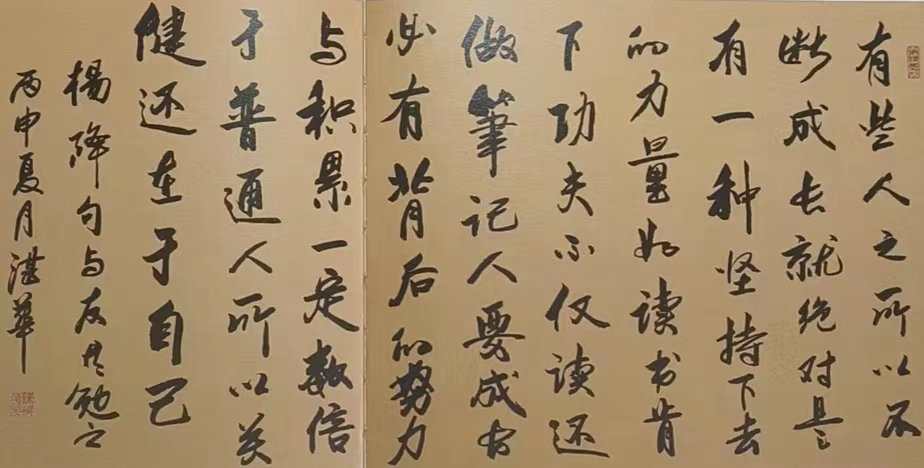 有些人之所以不
断成长就绝对是
有一种坚持下去
的力量好读书肯
下功夫不仅读还
做筆记人要成
必有背后的努力
与积累一定数倍
于普通人所以关
健还在于自己
楊降句与友共勉之
丙申夏月湛華